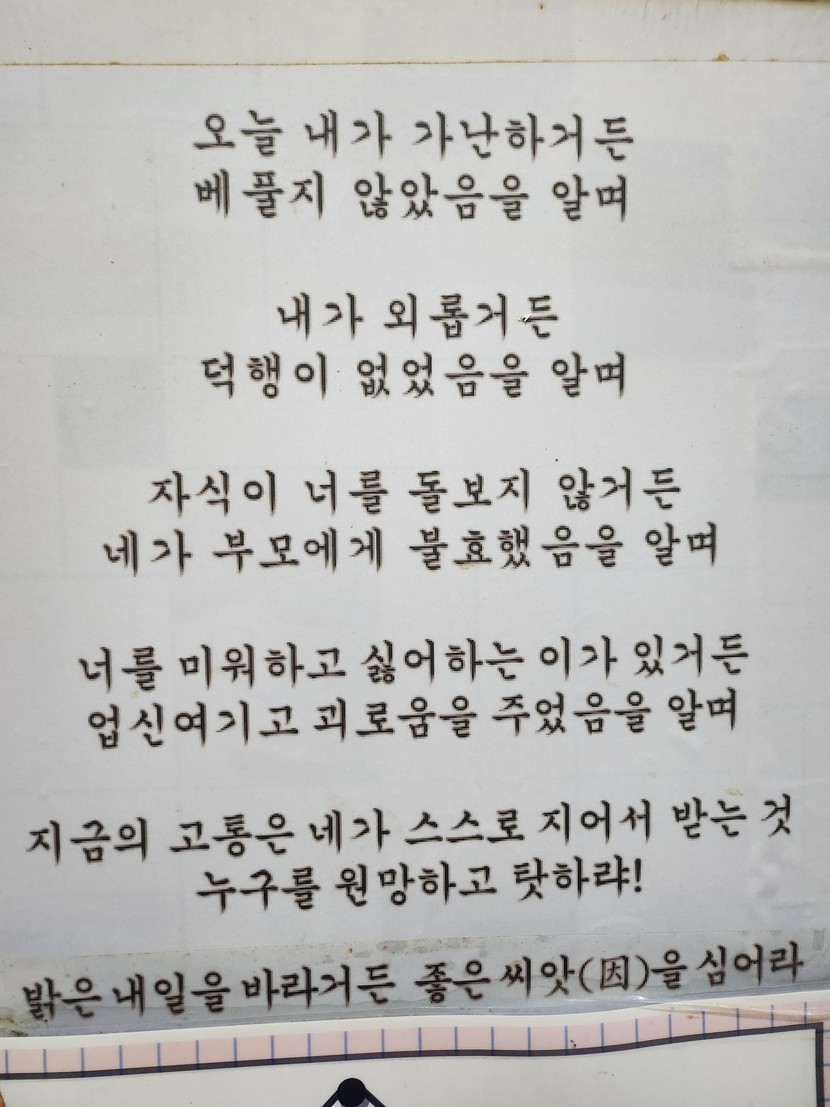 오늘 내가 가난하거든
베풀지 않았음을 알며
내가 외롭거든
덕행이 없었음을 알며
자식이 너를 돌보지 않거든
네가 부모에게 불효했음을 알며
너를 미워하고 싫어하는 이가 있거든
업신여기고 괴로움을 주었음을 알며
지금의 고통은 네가 스스로 지어서 받는 것
누구를 원망하고 탓하랴!
밝은 내일을 바라거든 좋은 씨앗(因)을 심어라